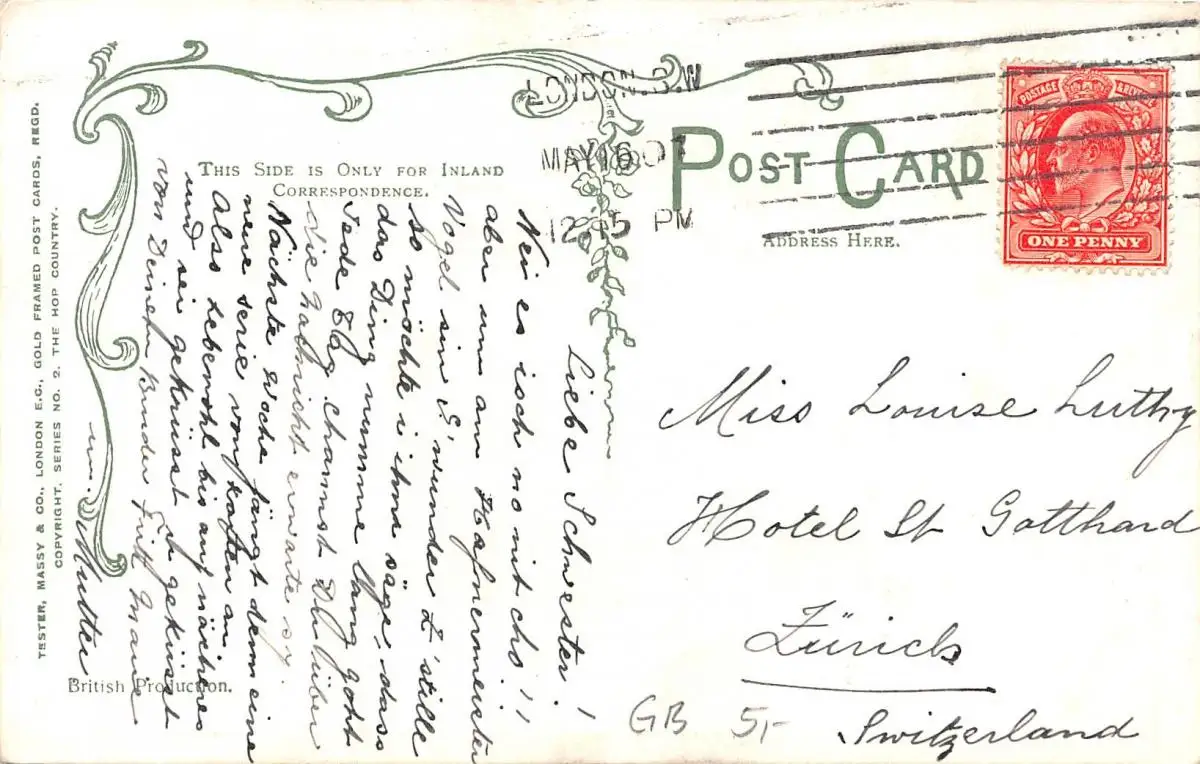 TESTER, MASSY & CO., LONDON E.C., GOLD FRAMED POST CARDS, REGD.
COPYRIGHT. SERIES NO. 2. THE HOP COUNTRY.
THIS SIDE IS ONLY FOR INLAND
CORRESPONDENCE.
LONDON. S.W
MAY 16 07
12 15 PM
POST CARD
ADDRESS HERE.
POSTAGE REVENUE
ONE PENNY
Liebe Schwester!
Nei es isch no nit cho!!
aber um am
Vogel sin E' wunder Z' stille
so möchte i ihm säge, dass
das Ding numme lang goht
Jede Tag chammst Du über
die erwarte
Nächste Woche fängt denn eine
neue serie von Karten an.
Also Lebewohl bis auf nächeres
und sei gekrüsst & gekisst
von Deinem Bruder Fritz
u. Mutter
British Production.
Miss Louise Luthy
Hotel St Gotthard
Zürich
Switzerland
GB 5,-